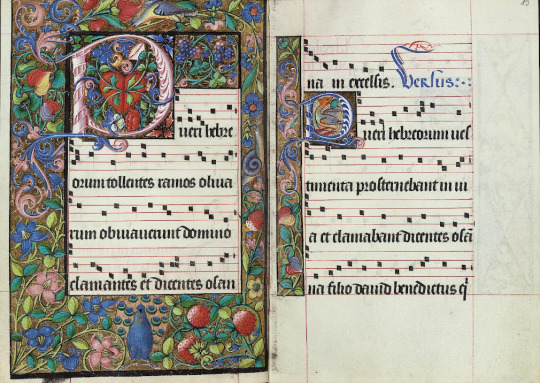 Pueri hebre
orum tollentes ramos oliua
rum obuiauerunt domino
clamantes et dicentes osan
na in excelsis. Versus:·:
Pueri hebreorum ves
timenta prosternebant in ui
a et clamabant dicentes osā
na filio dauid benedictus q̄